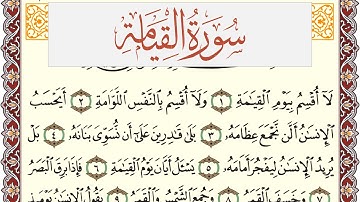 سُورَةُ القِيَامَةِ
لَآ أُقۡسِمُ بِيَوۡمِ ٱلۡقِيَٰمَةِ ١ وَلَآ أُقۡسِمُ بِٱلنَّفۡسِ ٱللَّوَّامَةِ ٢ أَيَحۡسَبُ
ٱلۡإِنسَٰنُ أَلَّن نَّجۡمَعَ عِظَامَهُۥ ٣ بَلَىٰ قَٰدِرِينَ عَلَىٰٓ أَن نُّسَوِّيَ بَنَانَهُۥ ٤ بَلۡ
يُرِيدُ ٱلۡإِنسَٰنُ لِيَفۡجُرَ أَمَامَهُۥ ٥ يَسۡـَٔلُ أَيَّانَ يَوۡمُ ٱلۡقِيَٰمَةِ ٦ فَإِذَا بَرِقَ ٱلۡبَصَرُ
٧ وَخَسَفَ ٱلۡقَمَرُ ٨ وَجُمِعَ ٱلشَّمۡسُ وَٱلۡقَمَرُ ٩ يَقُولُ ٱلۡإِنسَٰنُ يَوۡمَئِذٍ